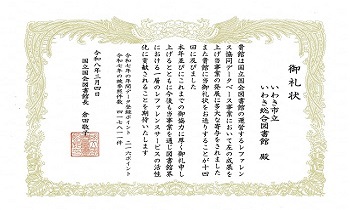 御礼状
いわき市立
いわき総合図書館 殿
貴館は国立国会図書館の運営するレファレン
ス協同データベース事業において左の成果を
上げ当事業の発展に多大な寄与をされました
また貴館に当御礼状をお送りすることが十四
回に及びました
本年並びにこれまでの御協力に厚く御礼申し
上げるとともに今後も当事業を通じ図書館界
における一層のレファレンスサービスの活性
化に貢献されることを期待いたします
令和七年の年間データ登録ポイント 二一六ポイント
令和七年の被参照件数 四一七八一件
令和八年三月四日
国立国会図書館長 倉田敬子